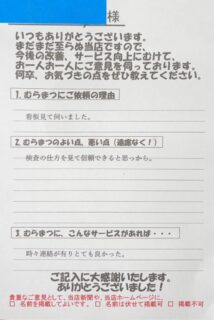 様
いつもありがとうございます。
まだまだ至らぬ当店ですので、
今後の改善、サービス向上にむけて、
お一人お一人にご意見を伺っております。
何卒、お気づきの点をぜひ教えてください。
1. むらまつにご依頼の理由
看板見て伺いました。
2. むらまつのよい点、悪い点（遠慮なく！）
検査の仕方を見て信頼できると思っから。
3. むらまつに、こんなサービスがあれば・・・
時々連絡が有りとても良かった。
ご記入に大感謝いたします。
ありがとうございました！
貴重なご意見として、当店新聞や、当店ホームページに、
□ 名前を掲載してよいです。 □ 名前は伏せて掲載可 □ 掲載不可